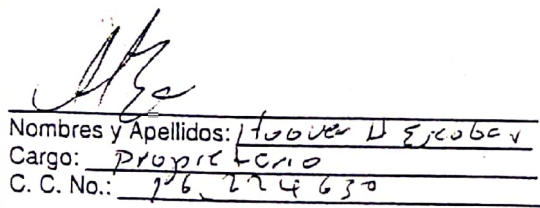 Nombres y Apellidos: Hoover D Escobar
Cargo: Propietario
C. C. No.: 16.224630